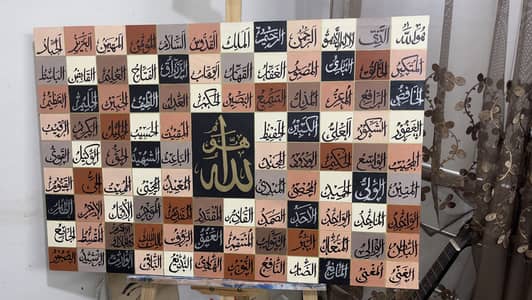 هو الله الذي لا إله إلا هو الرحمن الرحيم الملك القدوس السلام المؤمن المهيمن العزيز الجبار
المتكبر الخالق البارئ المصور الغفار القهار الوهاب الرزاق الفتاح العليم القابض الباسط
الخافض الرافع المعز المذل السميع البصير الحكم العدل اللطيف الخبير الحليم العظيم
الغفور الشكور العلي الكبير الحفيظ المقيت الحسيب الجليل الكريم الرقيب
هو الله
المجيب الواسع الحكيم الودود المجيد الباعث الشهيد الحق الوكيل القوي
المتين الولي الحميد المحصي المبدئ المعيد المحيي المميت الحي القيوم
الواجد الماجد الواحد الأحد الصمد القادر المقتدر المقدم المؤخر الأول الآخر الظاهر
الباطن الوالي المتعالي البر التواب المنتقم العفو الرؤوف المقسط الجامع
الغني المغني المانع الضار النافع النور الهادي البديع الباقي الوارث الرشيد الصبور